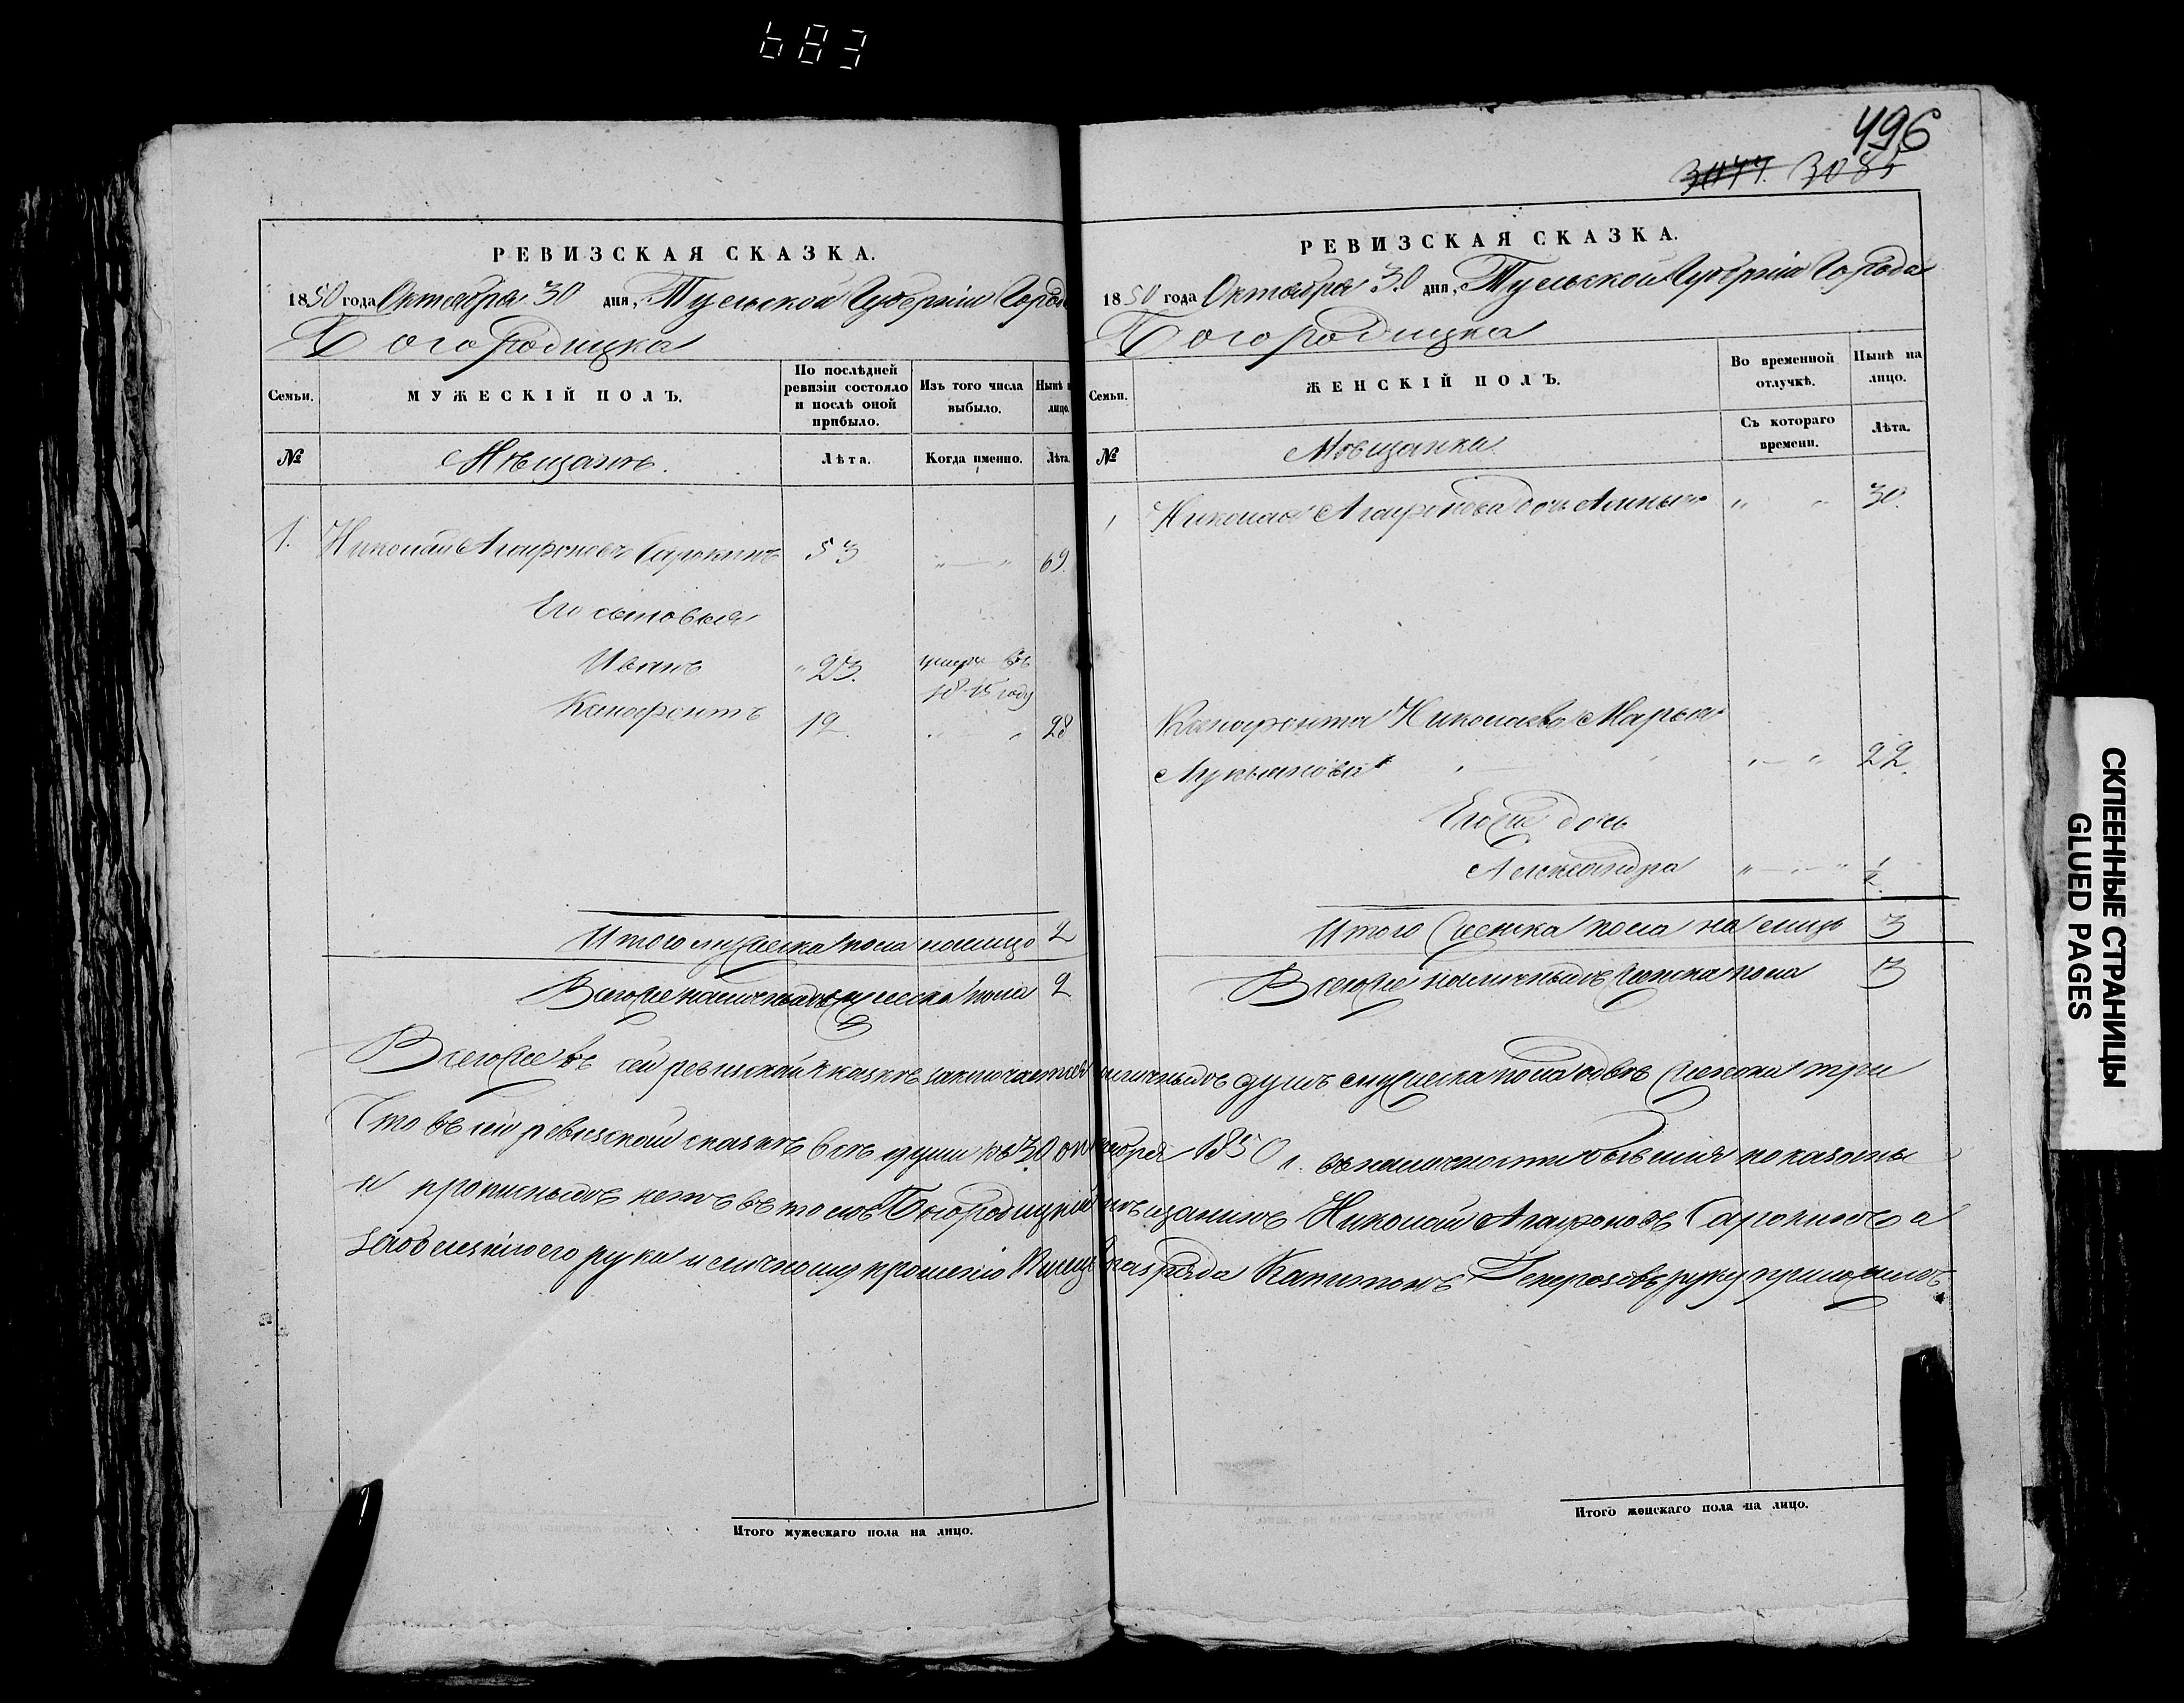 683
496
3077. 3085
РЕВИЗСКАЯ СКАЗКА.
1850 года Октября 30 дня, Тульской Губерніи Города
Богородицка
Семьи.
МУЖЕСКІЙ ПОЛЪ.
По послѣдней ревизіи состояло и послѣ оной прибыло.
Изъ того числа выбыло.
Нынѣ на лицо.
№
Мѣщанъ.
Лѣта.
Когда именно.
Лѣта.
1. Николай Агафоновъ Сарокинъ 53 " — " 69.
Его сыновья
Иванъ " 23. умеръ въ
1845 году
Ксенофонтъ 19. " " 28
Итого мужеска пола налицо 2
Всего же наличныхъ мужеска пола 2
РЕВИЗСКАЯ СКАЗКА.
1850 года Октября 30 дня, Тульской Губерніи Города
Богородицка
Семьи.
ЖЕНСКІЙ ПОЛЪ.
Во временной отлучкѣ.
Нынѣ на лицо.
№
Мѣщанка.
Съ котораго времени.
Лѣта.
1 Николая Агафонова дочь " " 30.
Ксенофонта Николаева Марья
Лукьянова " — " " — " 22.
Его же дочь
Александра " — " — " 1/2
Итого женска пола на лицо 3
Всего же наличныхъ женска пола 3
Всего же въ сей ревизской сказкѣ заключается наличныхъ душъ мужеска пола двѣ женска три
Что въ сей ревизской сказкѣ всѣ души къ 30 октября 1850 г. въ наличности бывшия показаны
и прописныхъ нетъ въ томъ Богородицкій мѣщанинъ Николай Агафоновъ Сарокинъ а
вместо его руки и личному прошенію разряда Капитонъ руку приложилъ
Итого мужескаго пола на лицо.
Итого женскаго пола на лицо.
СКЛЕЕННЫЕ СТРАНИЦЫ
GLUED PAGES